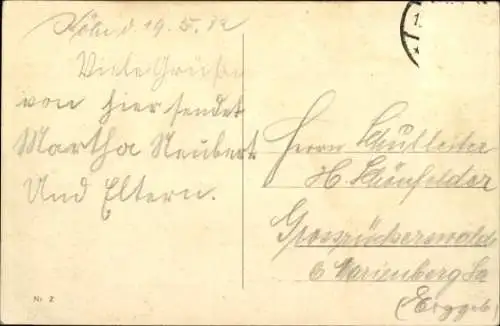 Köln d 19. 5. 12
Viele Grüße
von hier sendet
Martha Neubert
Und Eltern.
Herrn Schulleiter
H. Schönfelder
Grossrückerswalde
b Marienberg Sa
(Erzgeb)
Nr. Z